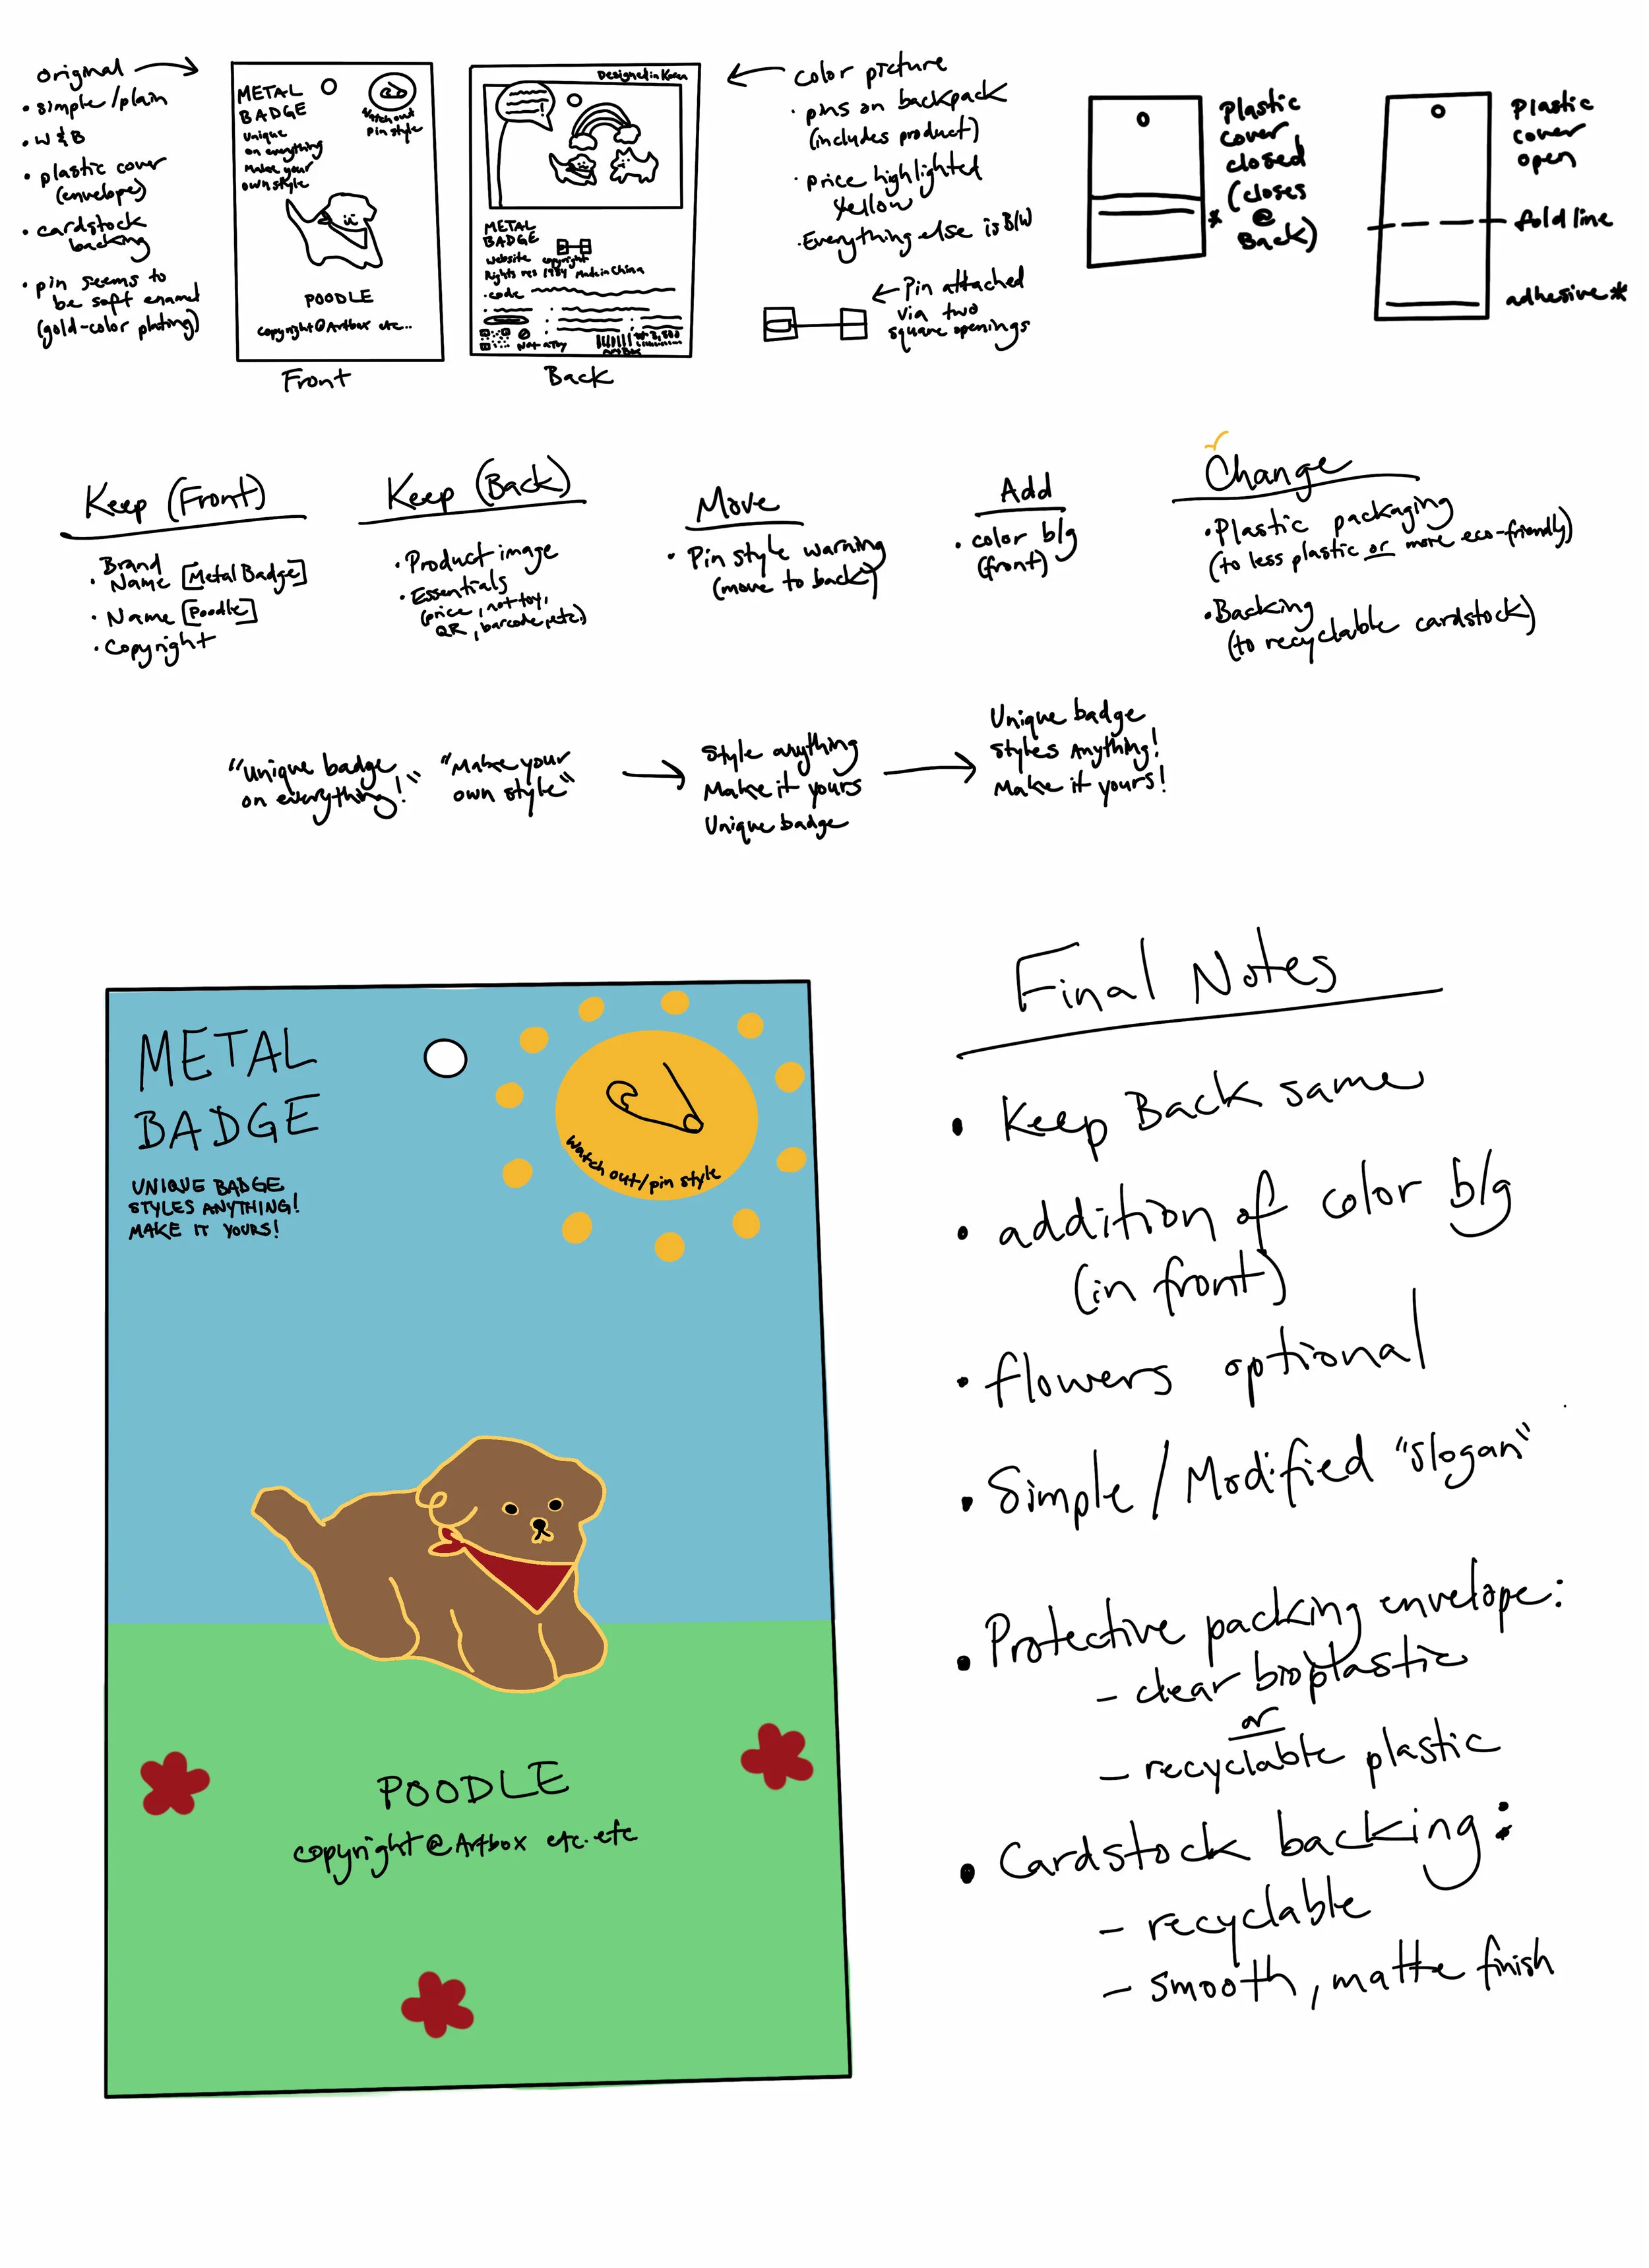 Original
• simple/plain
• W & B
• plastic cover
(envelope)
• cardstock
backing
• pin seems to
be soft enamel
(gold-color plating)
METAL
BADGE
Unique
on everything
Make your
own style
Watch out
Pin style
POODLE
copyright @ Artbox etc..
Front
Designed in Korea
METAL
BADGE
website copyright
Rights res 1984 Made in China
• code
Not a Toy
ArtBox
Back
color picture
• pins on backpack
(includes product)
• price highlighted
yellow
• Everything else is B/W
Pin attached
via two
square openings
Plastic
cover
closed
(closes
@
Back)
*
Plastic
cover
open
fold line
adhesive*
Keep (Front)
• Brand
Name [Metal Badge]
• Name [Poodle]
• Copyright
Keep (Back)
• Product image
• Essentials
(price, not toy,
QR, barcode, etc.)
Move
• Pin style warning
(move to back)
Add
• color b/g
(front)
Change
• Plastic packaging
(to less plastic or more eco-friendly)
• Backing
(to recyclable cardstock)
"Unique badge
on everything!"
"Make your
own style"
Style anything
Make it yours
Unique badge
Unique badge
styles Anything!
Make it yours!
METAL
BADGE
UNIQUE BADGE
STYLES ANYTHING!
MAKE IT YOURS!
Watch out/pin style
POODLE
copyright @ Artbox etc. etc
Final Notes
• Keep Back same
• addition of color b/g
(in front)
• flowers optional
• Simple / Modified "slogan"
• Protective packing envelope:
– clear bioplastic
or
– recyclable plastic
• Cardstock backing:
– recyclable
– smooth, matte finish